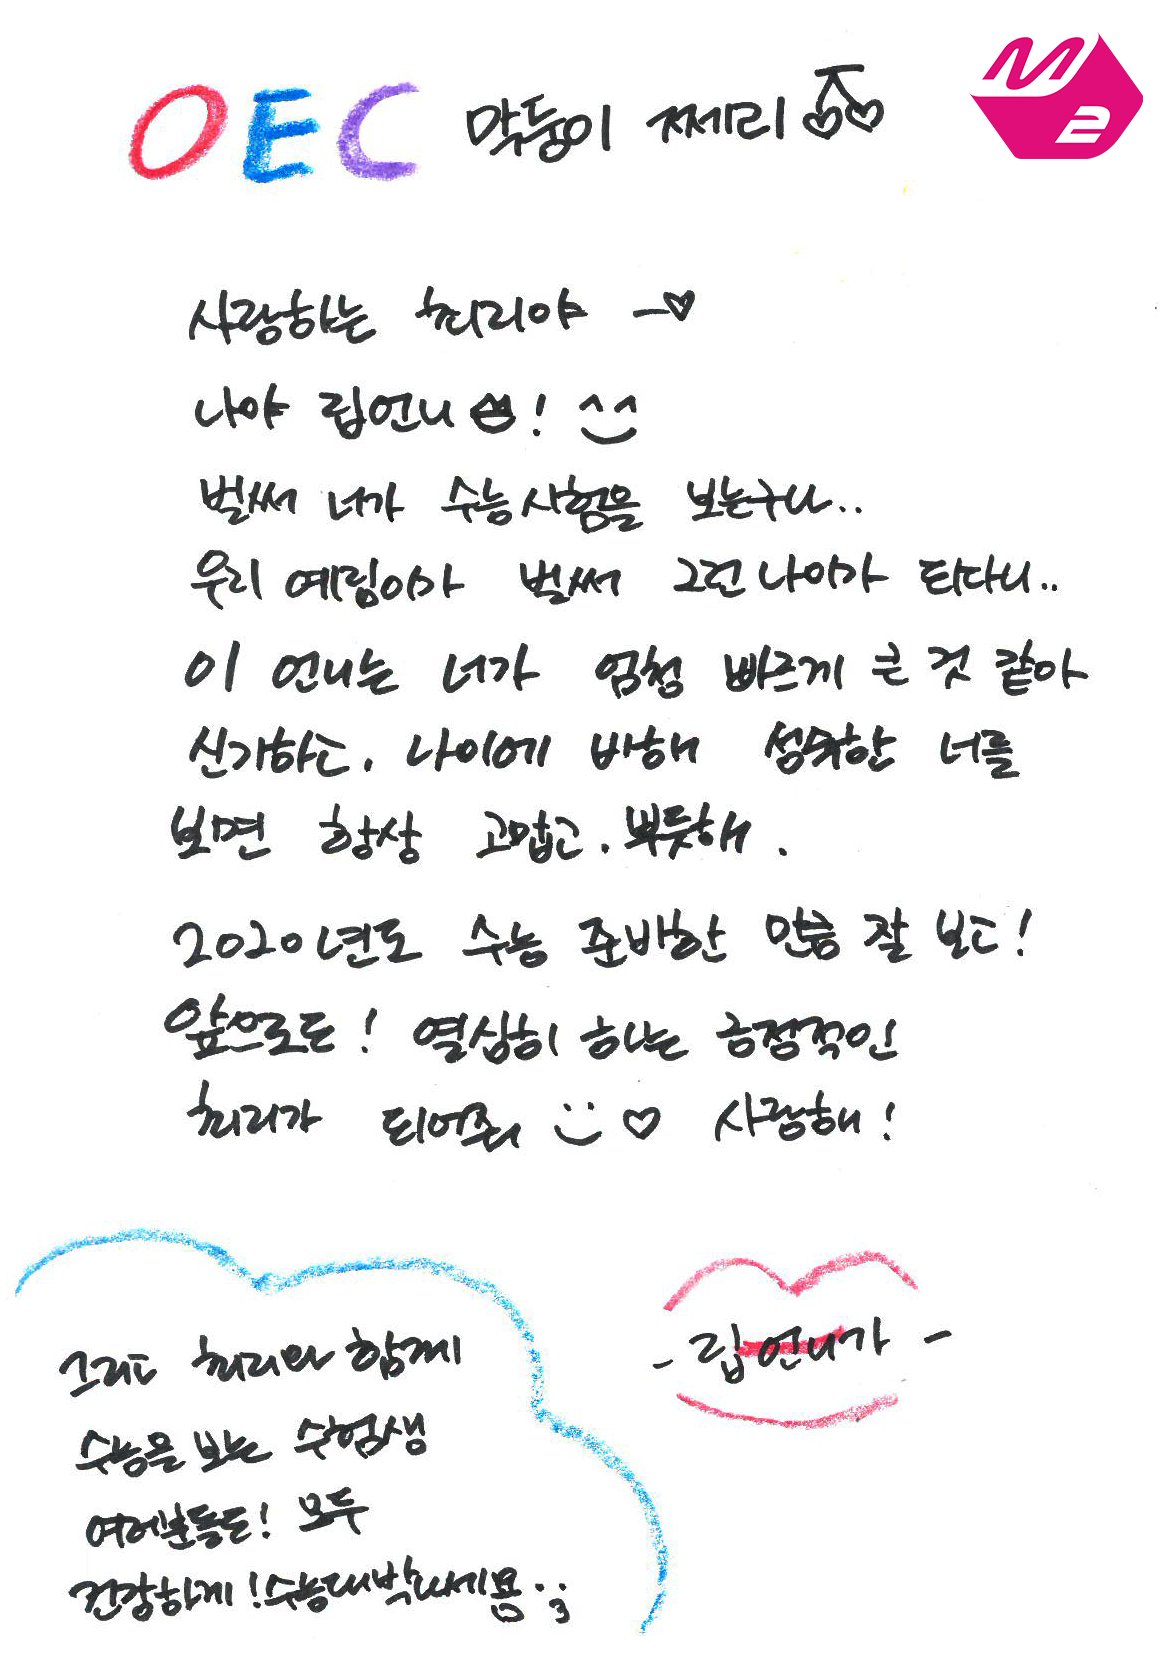 OEC 막둥이 쩨리
M2
사랑하는 췌리야 -♡
나야 립언니 ! ^^
벌써 너가 수능시험을 보는구나..
우리 예림이가 벌써 그런 나이가 되다니..
이 언니는 너가 엄청 빠르게 큰 것 같아
신기하고, 나이에 비해 성숙한 너를
보면 항상 고맙고, 뿌듯해.
2020년도 수능 준비한 만큼 잘 보고!
앞으로도! 열심히 하는 긍정적인
췌리가 되어줘 ♡ 사랑해!
그리고 췌리와 함께
수능을 보는 수험생
여러분들도! 모두
건강하게! 수능대박나세욤
- 립언니가 -